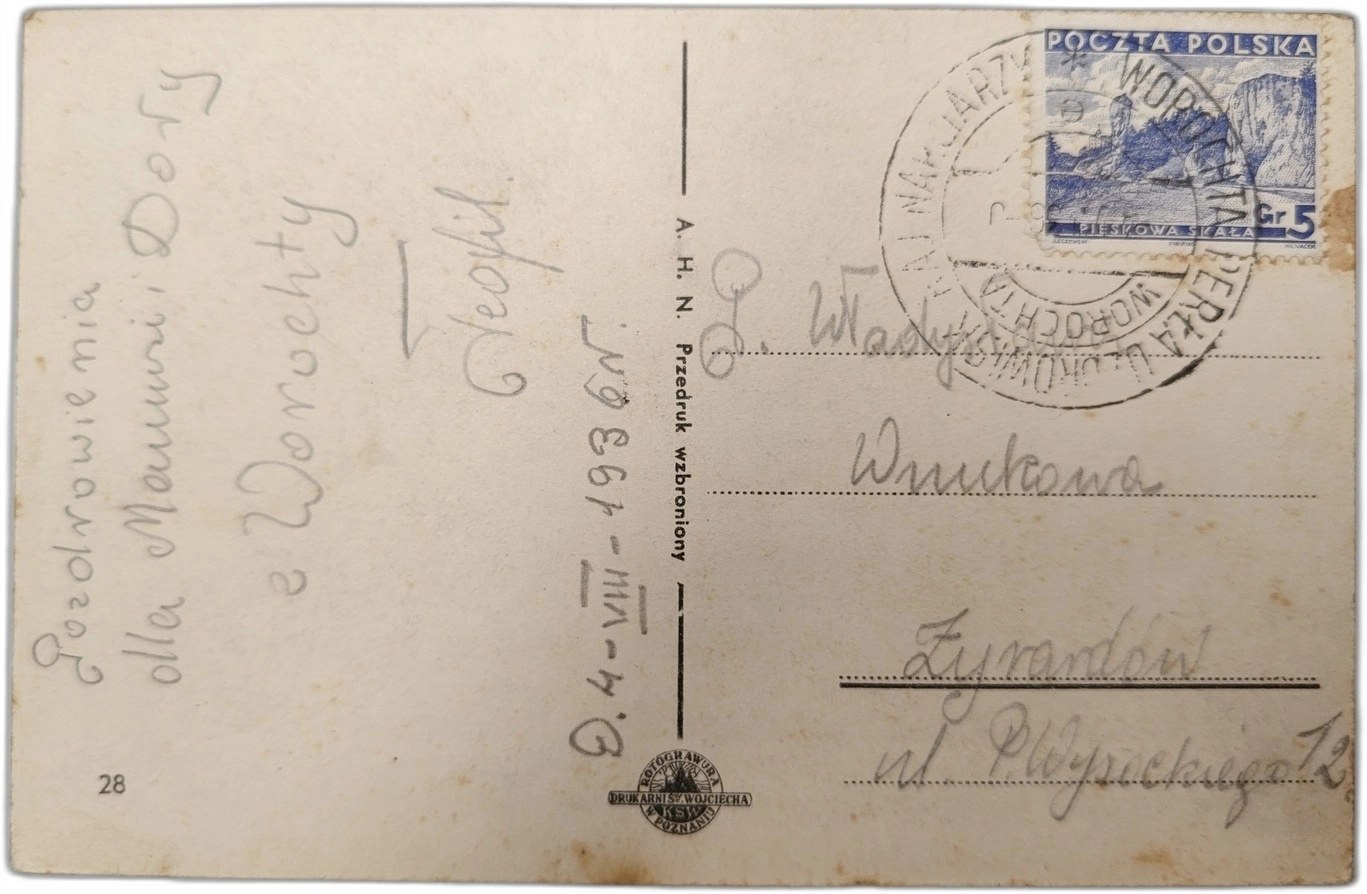 Pozdrowienia
dla Mamusi i Dory
z Worochty
Teofil.
D. 4-VIII-1939r.
28
A. H. N. Przedruk wzbroniony
ROTOGRAWURA
DRUKARNI ŚW. WOJCIECHA
KSW
W POZNANIU
POCZTA POLSKA
PIESKOWA SKAŁA
Gr 5
* WOROCHTA PERŁA UZDROWISK NARCIARZY
WOROCHTA
Władysława
Wnukowa
Żyrardów
ul. P. Wysockiego 12.